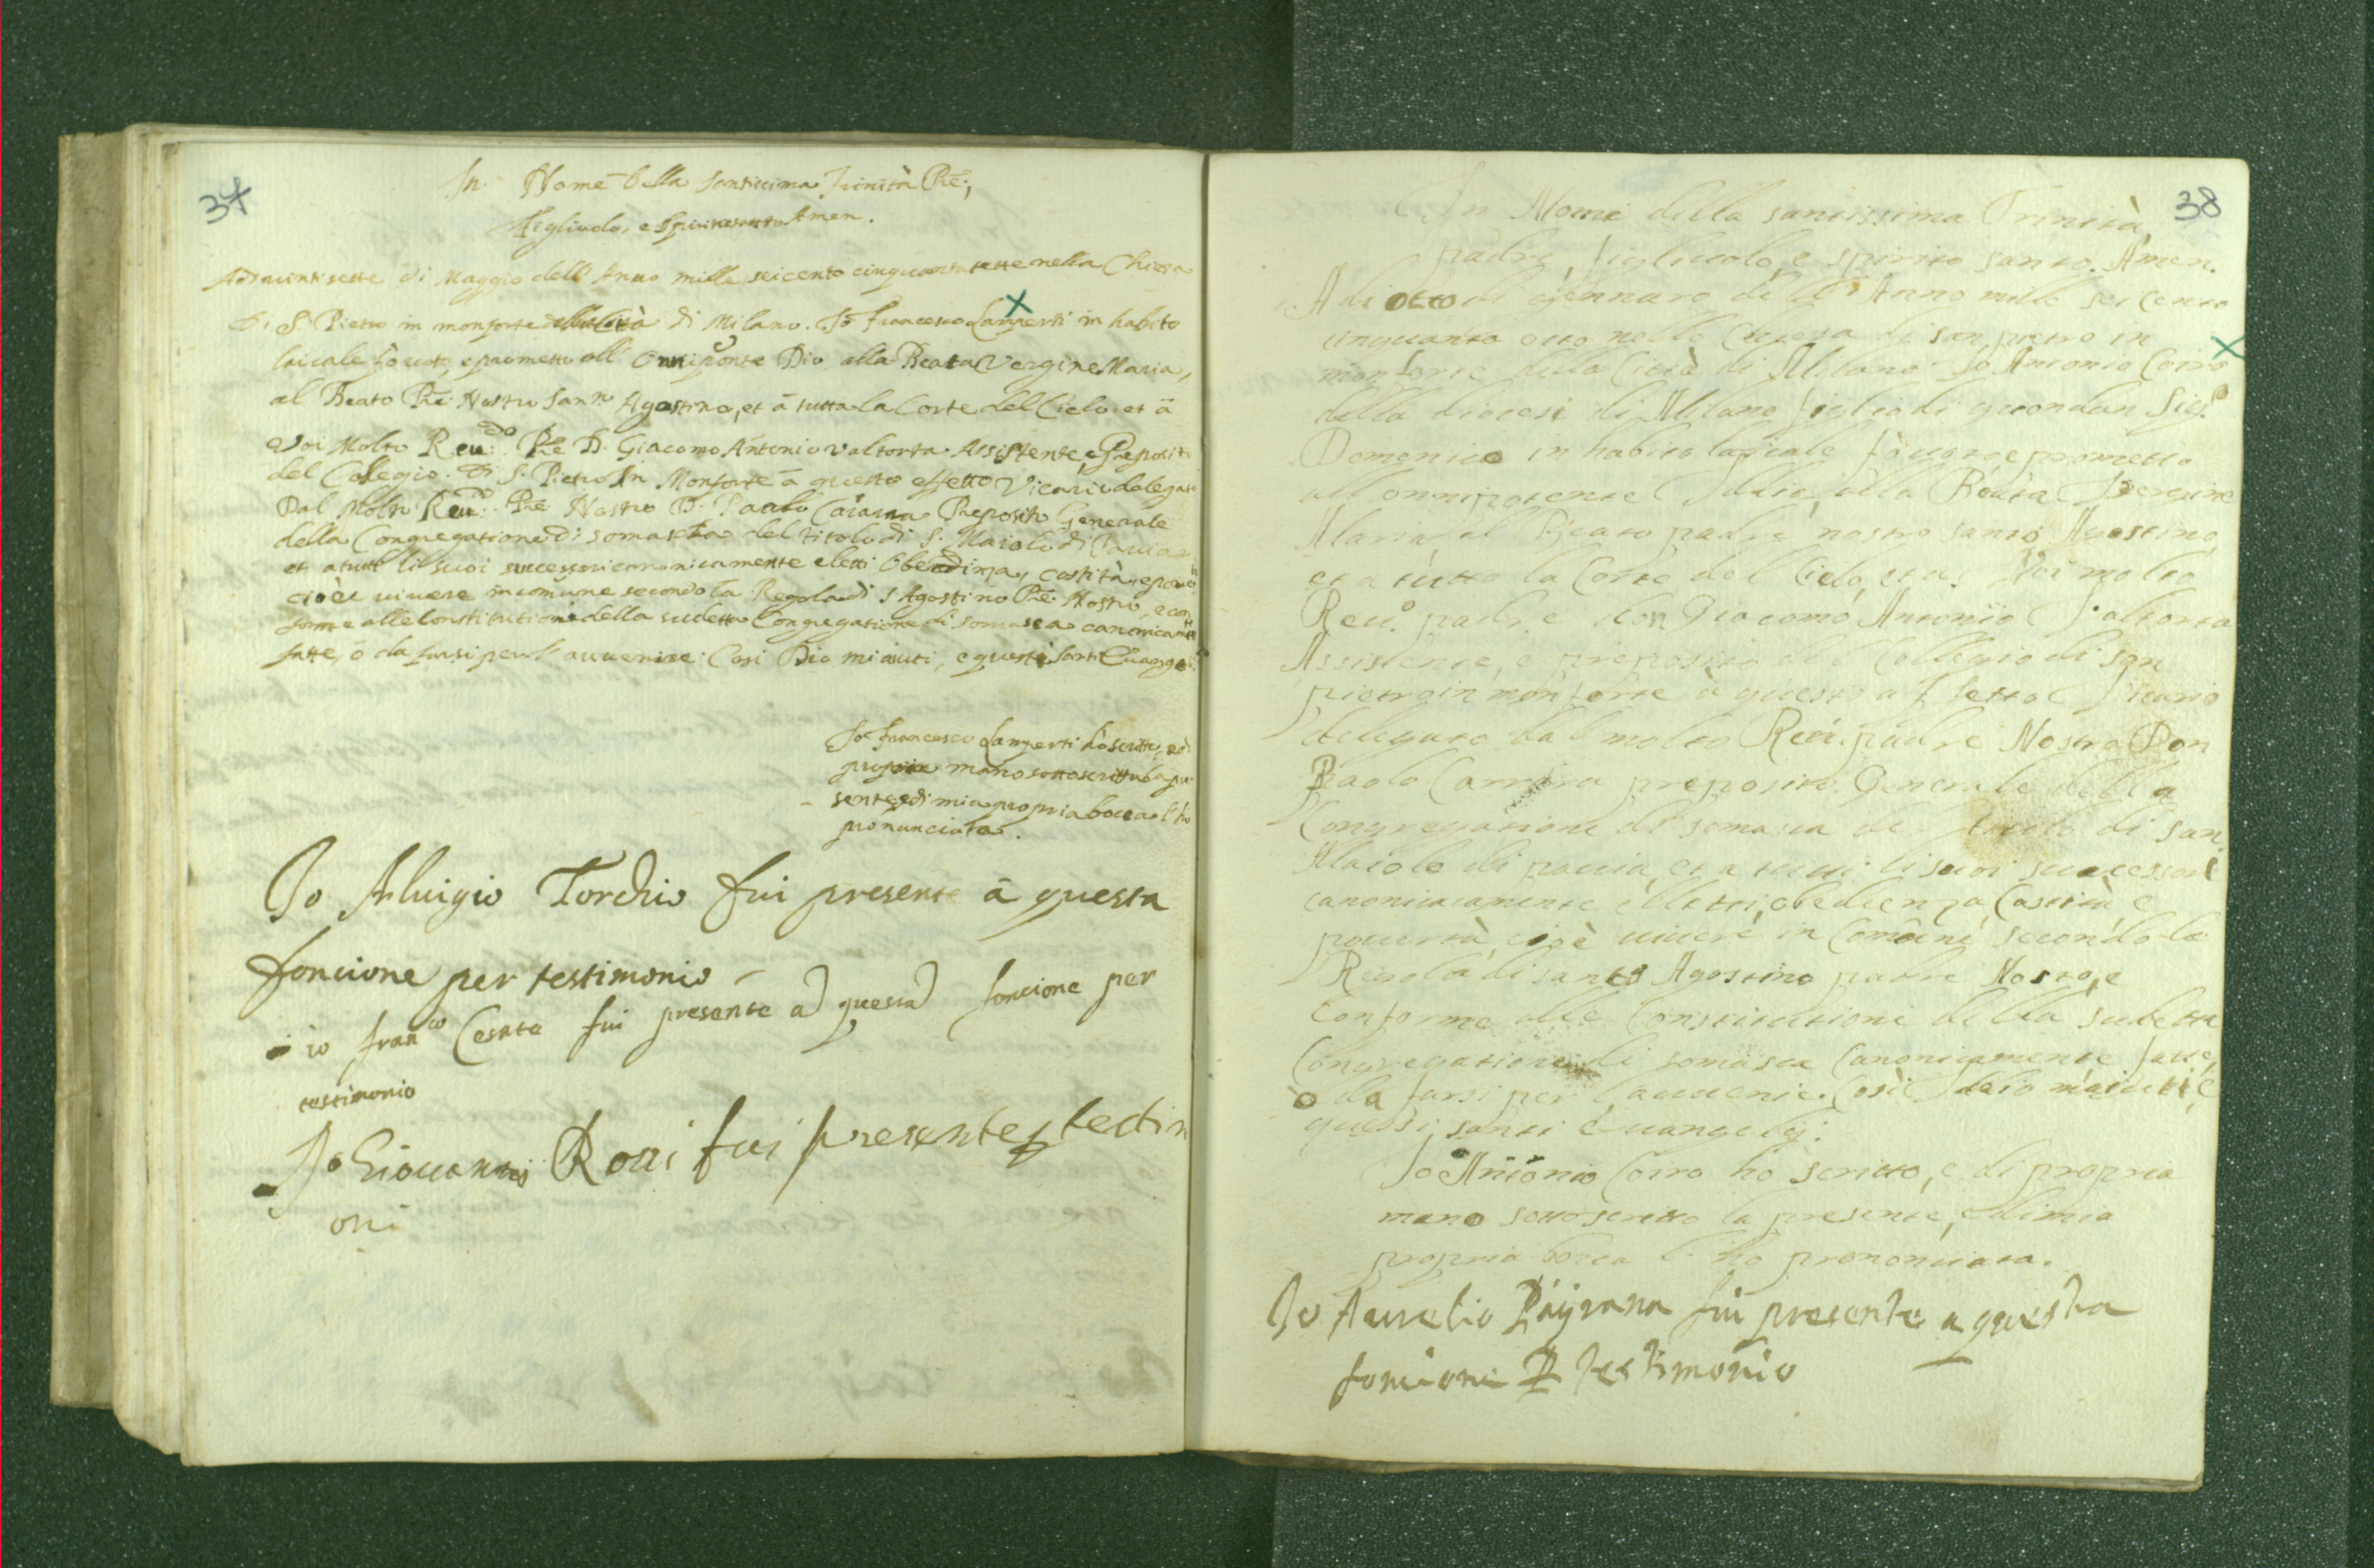 37
In Nome della santissima Trinità Pre,
Figliuolo, e Spirito santo Amen.
Adi uinti sette di Maggio dell'Anno mille seicento cinquanta sette nella Chiesa
di S. Pietro in monforte della Città di Milano. Io francesco Lamperti in habito
laicale fò uoto, e prometto all' Onniponte Dio, alla Beata Vergine Maria,
al Beato Pre Nostro Santo Agostino, et à tutta la Corte del Cielo, et à
Voi Molto Reu.do Pre D. Giacomo Antonio Valtorta Assistente, e Preposito
del Collegio di S. Pietro In Monforte à questo effetto Vicario delegato
Dal Molto Reu.do Pre Nostro D. Paolo Carara Preposito Generale
della Congregatione di somascha del titolo di S. Maiolo di Pauia
et a tutti li suoi successori canonicamente eletti Obedinza, castità, e pouertà
cioè uiuere in comune secondo la Regola di S Agostino Pre Nostro, e con
forme alle Constitutioni della sudetta Congregatione di Somasca canonicamte
fatte, ò da farsi per l'auuenire. Cosi Dio mi aiuti, e questi santi Euangeli.
Io francesco Lamperti hò scritto, e di
propria mano sottoscritto la pre
sente, e di mia propria bocca l'ho
pronunciata.
Io Aluigio Torchio fui presente à questa
foncione per testimonio
io fran.co Cesate fui presente a questa foncione per
testimonio
Io Giouanni Roui fui presente p testim
oni
38
In Nome della santissima Trinità,
padre, figliuolo, e spirito santo. Amen.
A di otto di Gennaro dell'Anno mille sei cento
cinquanta otto nella Chiesa di san pietro in
monforte della Città di Milano Io Antonio Coiro
della diocesi di Milano figlio di quondan Sig.r
Domenico in habito laicale fò uoto, e prometto
all onnipotente Iddio, alla Beata Vergine
Maria, al Beato padre nostro santo Agostino,
et a tutto la Corte del Cielo, et a Voi molto
Reu.o padre don Giacomo Antonio Valtorta
Assistente, e preposito del Collegio di san
pietro in monforte à questo affetto Vicario
delegato dal molto Reu. padre Nostro Don
Paolo Carrara preposito Generale della
Congregatione di somasca del titolo di san
Maiolo di pauia, et a tutti li suoi successori
canonicamente elletti, obedienza, Castità e
pouertà, cioè uiuere in Comune secondo la
Regola di santo Agostino patre Nostro, e
Conforme alle Constitutioni della sudetta
Congregatione di somasca Canonicamente fatte,
ò da farsi per l'auuenire. Così Iddio m'aiuti, e
questi santi Euangelij.
Io Antonio Coiro ho scritto, e di propria
mano sottoscritto la presente, e di mia
propria bocca l'ho prononciata.
Io Aurelio Pagrana fui presente a questa
foncione P testimonio